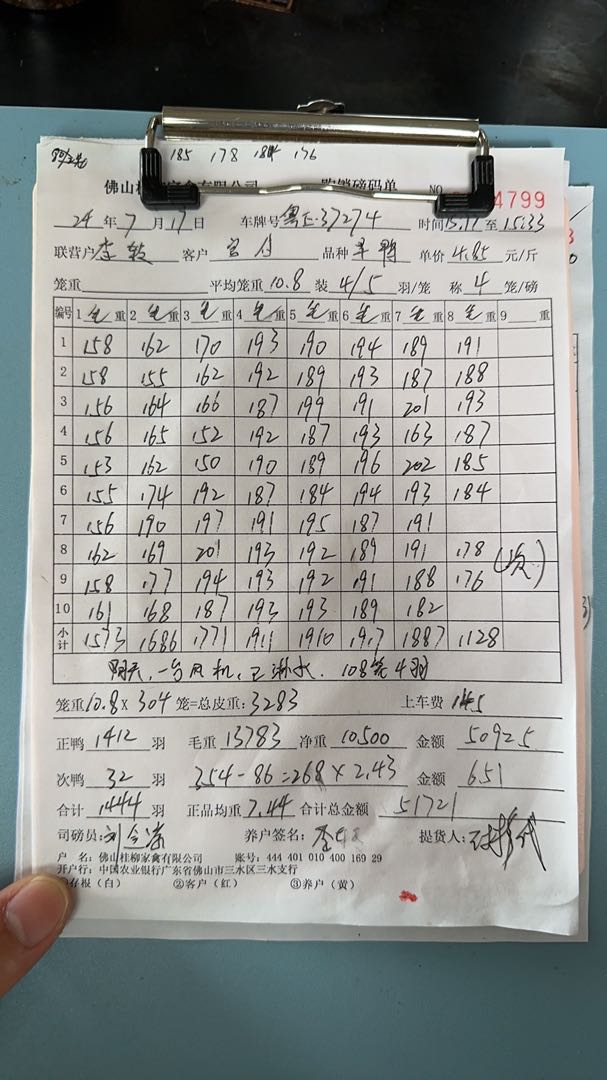 185 178 184 176
佛山桂柳家禽有限公司 购销磅码单 NO 4799
24 年 7 月 17 日 车牌号 粤E·37274 时间 15:17 至 15:33
联营户 李 客户 品种 旱鸭 单价 4.85 元/斤
笼重 平均笼重 10.8 装 4/5 羽/笼 称 4 笼/磅
编号 1 毛 重 2 毛 重 3 毛 重 4 毛 重 5 毛 重 6 毛 重 7 毛 重 8 毛 重 9 重
1 158 162 170 193 190 194 189 191
2 158 155 162 192 189 193 187 188
3 156 164 166 187 199 191 201 193
4 156 165 152 192 187 193 163 187
5 153 162 150 190 189 196 202 185
6 155 174 192 187 184 194 193 184
7 156 190 197 191 195 187 191
8 162 169 201 193 192 189 191 178 (次)
9 158 177 194 193 192 191 188 176
10 161 168 187 193 193 189 182
小计 1573 1686 1771 1911 1910 1917 1887 1128
阴天,一台风机,已淋水. 108笼4羽
笼重 10.8 × 304 笼=总皮重: 3283 上车费 145
正鸭 1412 羽 毛重 13783 净重 10500 金额 50925
次鸭 32 羽 354-86=268×2.43 金额 651
合计 1444 羽 正品均重 7.44 合计总金额 51721
司磅员: 刘 养户签名: 李 提货人:
户 名:佛山桂柳家禽有限公司 账号:444 401 010 400 169 29
开户行:中国农业银行广东省佛山市三水区三水支行
①存根(白) ②客户(红) ③养户(黄)